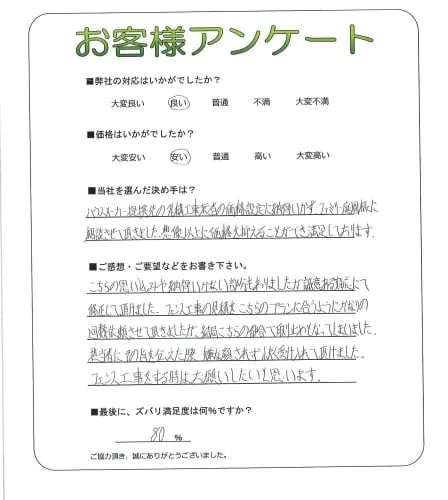 お客様アンケート
■弊社の対応はいかがでしたか？
大変良い 良い 普通 不満 大変不満
■価格はいかがでしたか？
大変安い 安い 普通 高い 大変高い
■当社を選んだ決め手は？
ハウスメーカー提携先の外構工事業者の価格設定に納得いかず、ファミリー庭園様に
相談させて頂きました。想像以上に価格を抑えることができ満足しております。
■ご感想・ご要望などをお書き下さい。
こちらの思い込みや納得いかない部分もありましたが誠意ある対応にて
修正して頂けました。フェンス工事の見積をこちらのプランに合うようにかなりの
回数依頼させて頂きましたが、結局こちらの都合で取り止めとなってしまいました。
担当者にその旨を伝えた際、嫌な顔されず快く受け入れて頂けました。
フェンス工事をする時は又お願いしたいと思います。
■最後に、ズバリ満足度は何%ですか？
80 %
ご協力頂き、誠にありがとうございました。